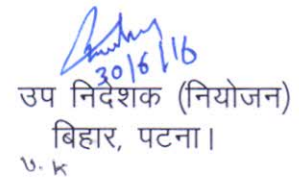 30/6/16
उप निदेशक (नियोजन)
बिहार, पटना।
V. K